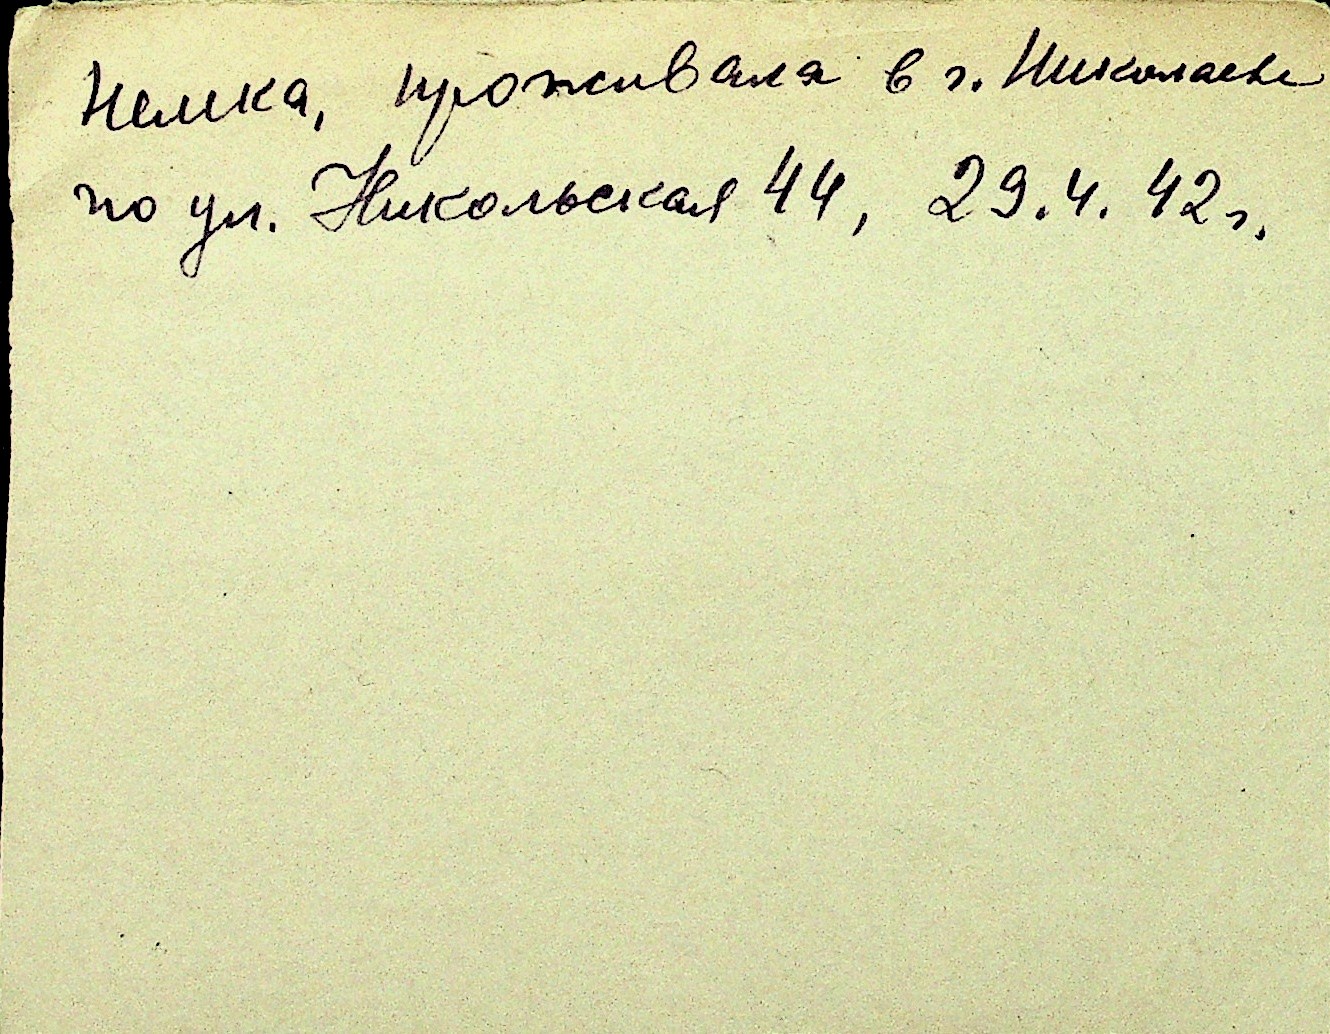 Немка, проживала в г. Николаеве
по ул. Никольская 44, 29.4.42г.